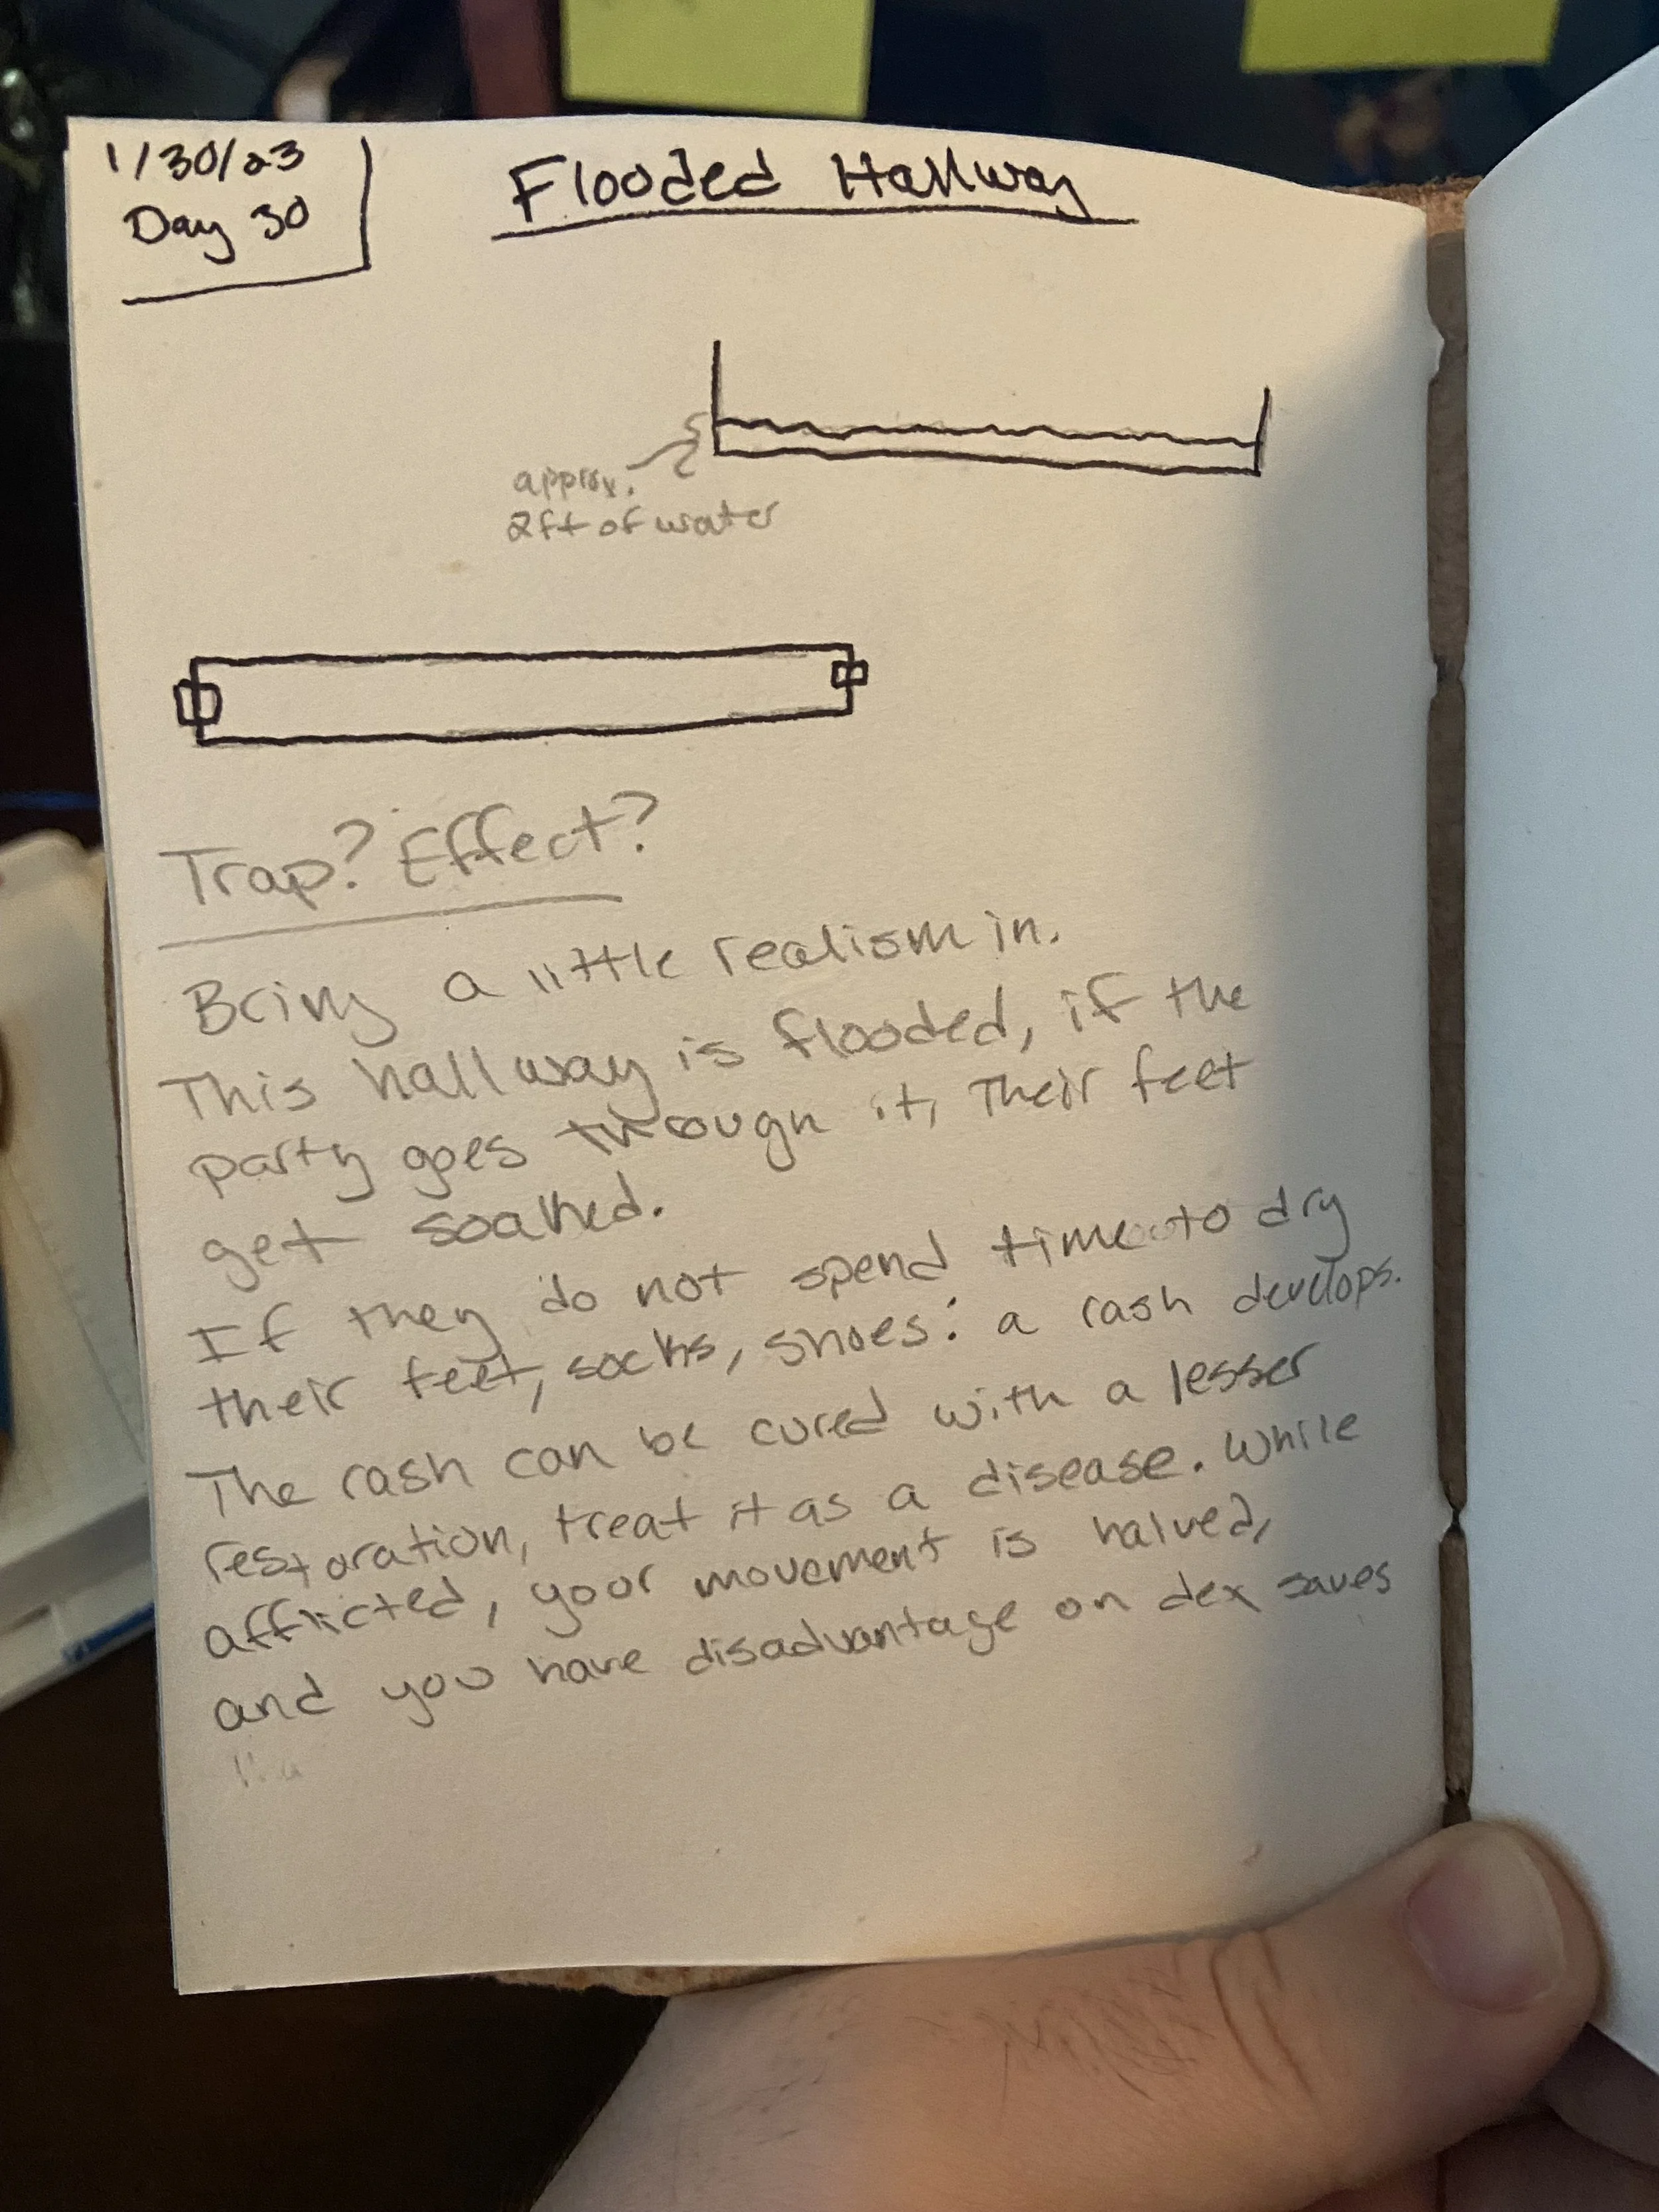 1/30/23
Day 30
Flooded Hallway
approx.
2ft of water
Trap? Effect?
Bring a little realism in.
This hallway is flooded, if the
party goes through it, Their feet
get soaked.
If they do not spend time to dry
their feet, socks, shoes: a rash develops.
The rash can be cured with a lesser
restoration, treat it as a disease. While
afflicted, your movement is halved,
and you have disadvantage on dex saves